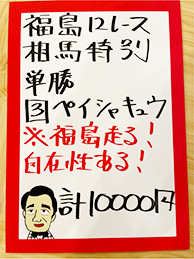 福島12レース
相馬特別
単勝
図ペイシャキュウ
※福島走る!
自在性ある!
計10000円